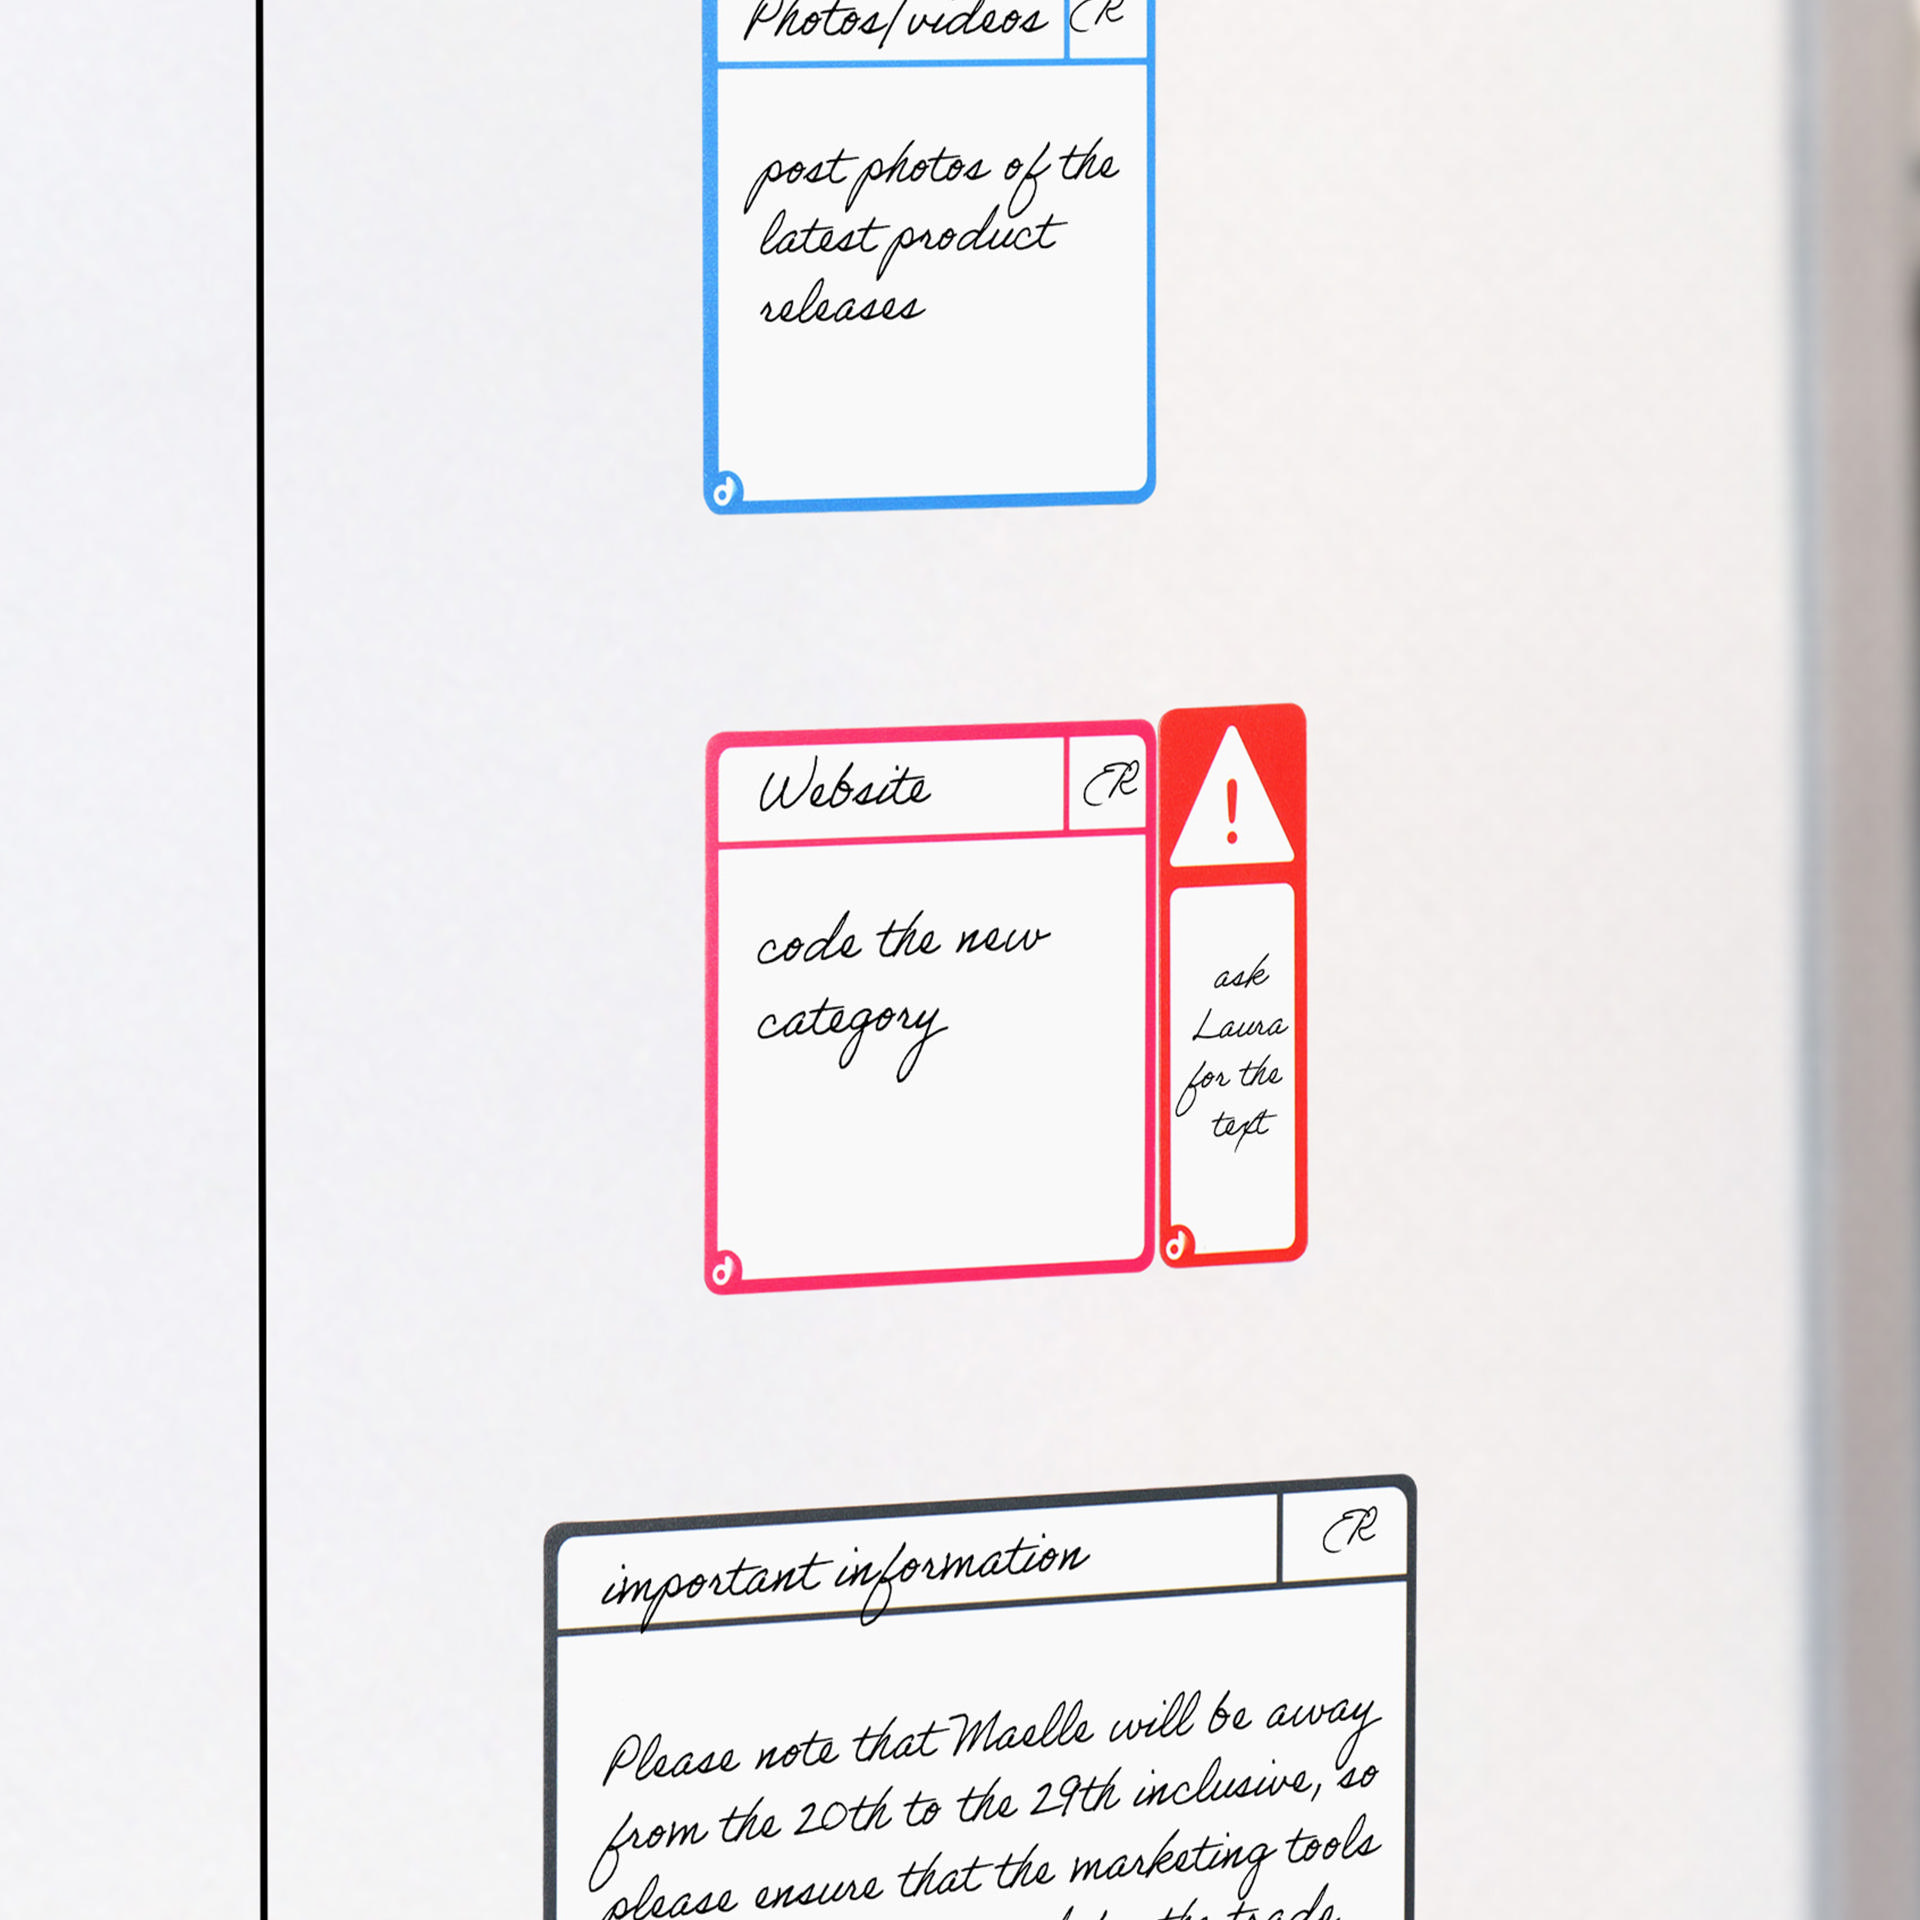 Photos/videos ER
post photos of the
latest product
releases
Website ER
code the new
category
ask
Laura
for the
text
important information ER
Please note that Maelle will be away
from the 20th to the 29th inclusive, so
please ensure that the marketing tools
the trade